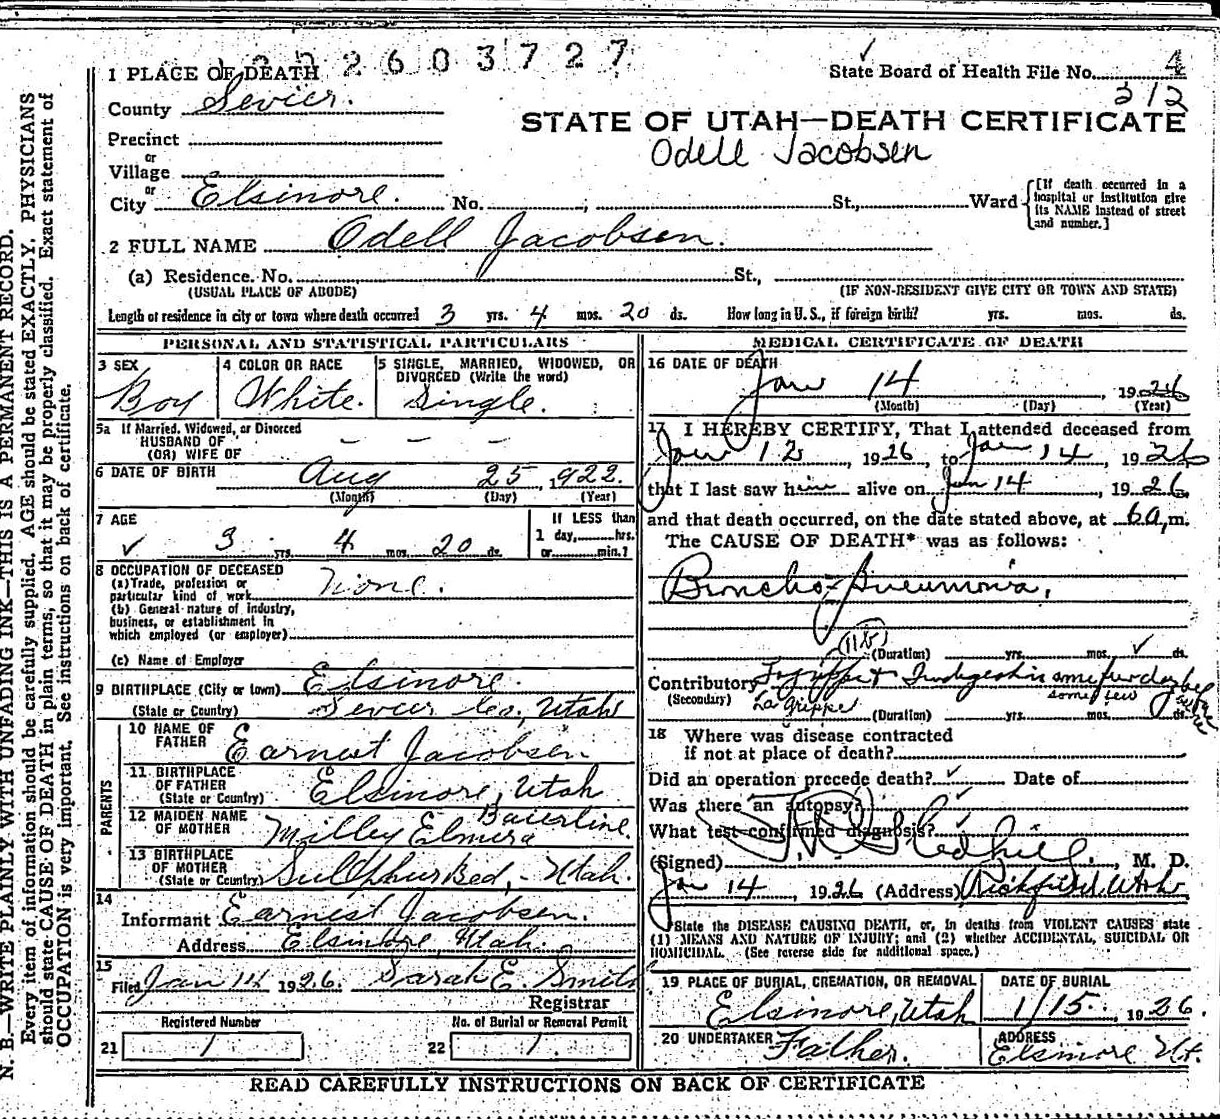 2603727
1 PLACE OF DEATH
State Board of Health File No. 4
County Sevier.
312
STATE OF UTAH—DEATH CERTIFICATE
Precinct
Odell Jacobsen
or
Village
or
City Elsinore. No. ; St., Ward
[If death occurred in a hospital or institution give its NAME instead of street and number.]
2 FULL NAME Odell Jacobsen.
(a) Residence. No. St.,
(USUAL PLACE OF ABODE) (IF NON-RESIDENT GIVE CITY OR TOWN AND STATE)
Length of residence in city or town where death occurred 3 yrs. 4 mos. 20 ds. How long in U. S., if foreign birth? yrs. mos. ds.
PERSONAL AND STATISTICAL PARTICULARS
3 SEX 4 COLOR OR RACE 5 SINGLE, MARRIED, WIDOWED, OR
DIVORCED (Write the word)
Boy White. Single.
5a If Married, Widowed, or Divorced
HUSBAND OF
(OR) WIFE OF - - - -
6 DATE OF BIRTH Aug 25, 1922.
(Month) (Day) (Year)
7 AGE If LESS than
✓ 3 yrs. 4 mos. 20 ds. 1 day, hrs.
or min.?
8 OCCUPATION OF DECEASED
(a) Trade, profession or
particular kind of work None.
(b) General nature of industry,
business, or establishment in
which employed (or employer)
(c) Name of Employer
9 BIRTHPLACE (City or town) Elsinore.
(State or Country) Sevier Co., Utah
PARENTS
10 NAME OF
FATHER Earnest Jacobsen
11 BIRTHPLACE
OF FATHER
(State or Country) Elsinore, Utah
12 MAIDEN NAME
OF MOTHER Milley Elmira Baierline.
13 BIRTHPLACE
OF MOTHER
(State or Country) Sulphur Bed, - Utah.
14
Informant Earnest Jacobsen.
Address Elsinore, Utah.
15
Filed Jan 14 1926. Sarah E. Smith
Registrar
Registered Number No. of Burial or Removal Permit
21 1 22 1.
MEDICAL CERTIFICATE OF DEATH
16 DATE OF DEATH
Jan 14 1926
(Month) (Day) (Year)
17 I HEREBY CERTIFY, That I attended deceased from
Jan 12, 1926, to Jan 14, 1926
that I last saw him alive on Jan 14, 1926,
and that death occurred, on the date stated above, at 6 a, m.
The CAUSE OF DEATH* was as follows:
Broncho-Pneumonia,
(Duration) yrs. mos. ✓ ds.
Contributory Lagrippe + Indigestion some few days before
(Secondary) La Grippe some few
(Duration) yrs. mos. ds.
18 Where was disease contracted
if not at place of death?
Did an operation precede death? ✓ Date of
Was there an autopsy? ✓
What test confirmed diagnosis? ✓
(Signed) , M. D.
Jan 14 1926 (Address) Richfield Utah
State the DISEASE CAUSING DEATH, or, in deaths from VIOLENT CAUSES state
(1) MEANS AND NATURE OF INJURY; and (2) whether ACCIDENTAL, SUICIDAL OR
HOMICIDAL. (See reverse side for additional space.)
19 PLACE OF BURIAL, CREMATION, OR REMOVAL DATE OF BURIAL
Elsinore, Utah 1/15. 1926.
20 UNDERTAKER ADDRESS
Father. Elsinore Ut.
READ CAREFULLY INSTRUCTIONS ON BACK OF CERTIFICATE
N. B.—WRITE PLAINLY WITH UNFADING INK—THIS IS A PERMANENT RECORD.
Every item of information should be carefully supplied. AGE should be stated EXACTLY. PHYSICIANS
should state CAUSE OF DEATH in plain terms, so that it may be properly classified. Exact statement of
OCCUPATION is very important. See instructions on back of certificate.